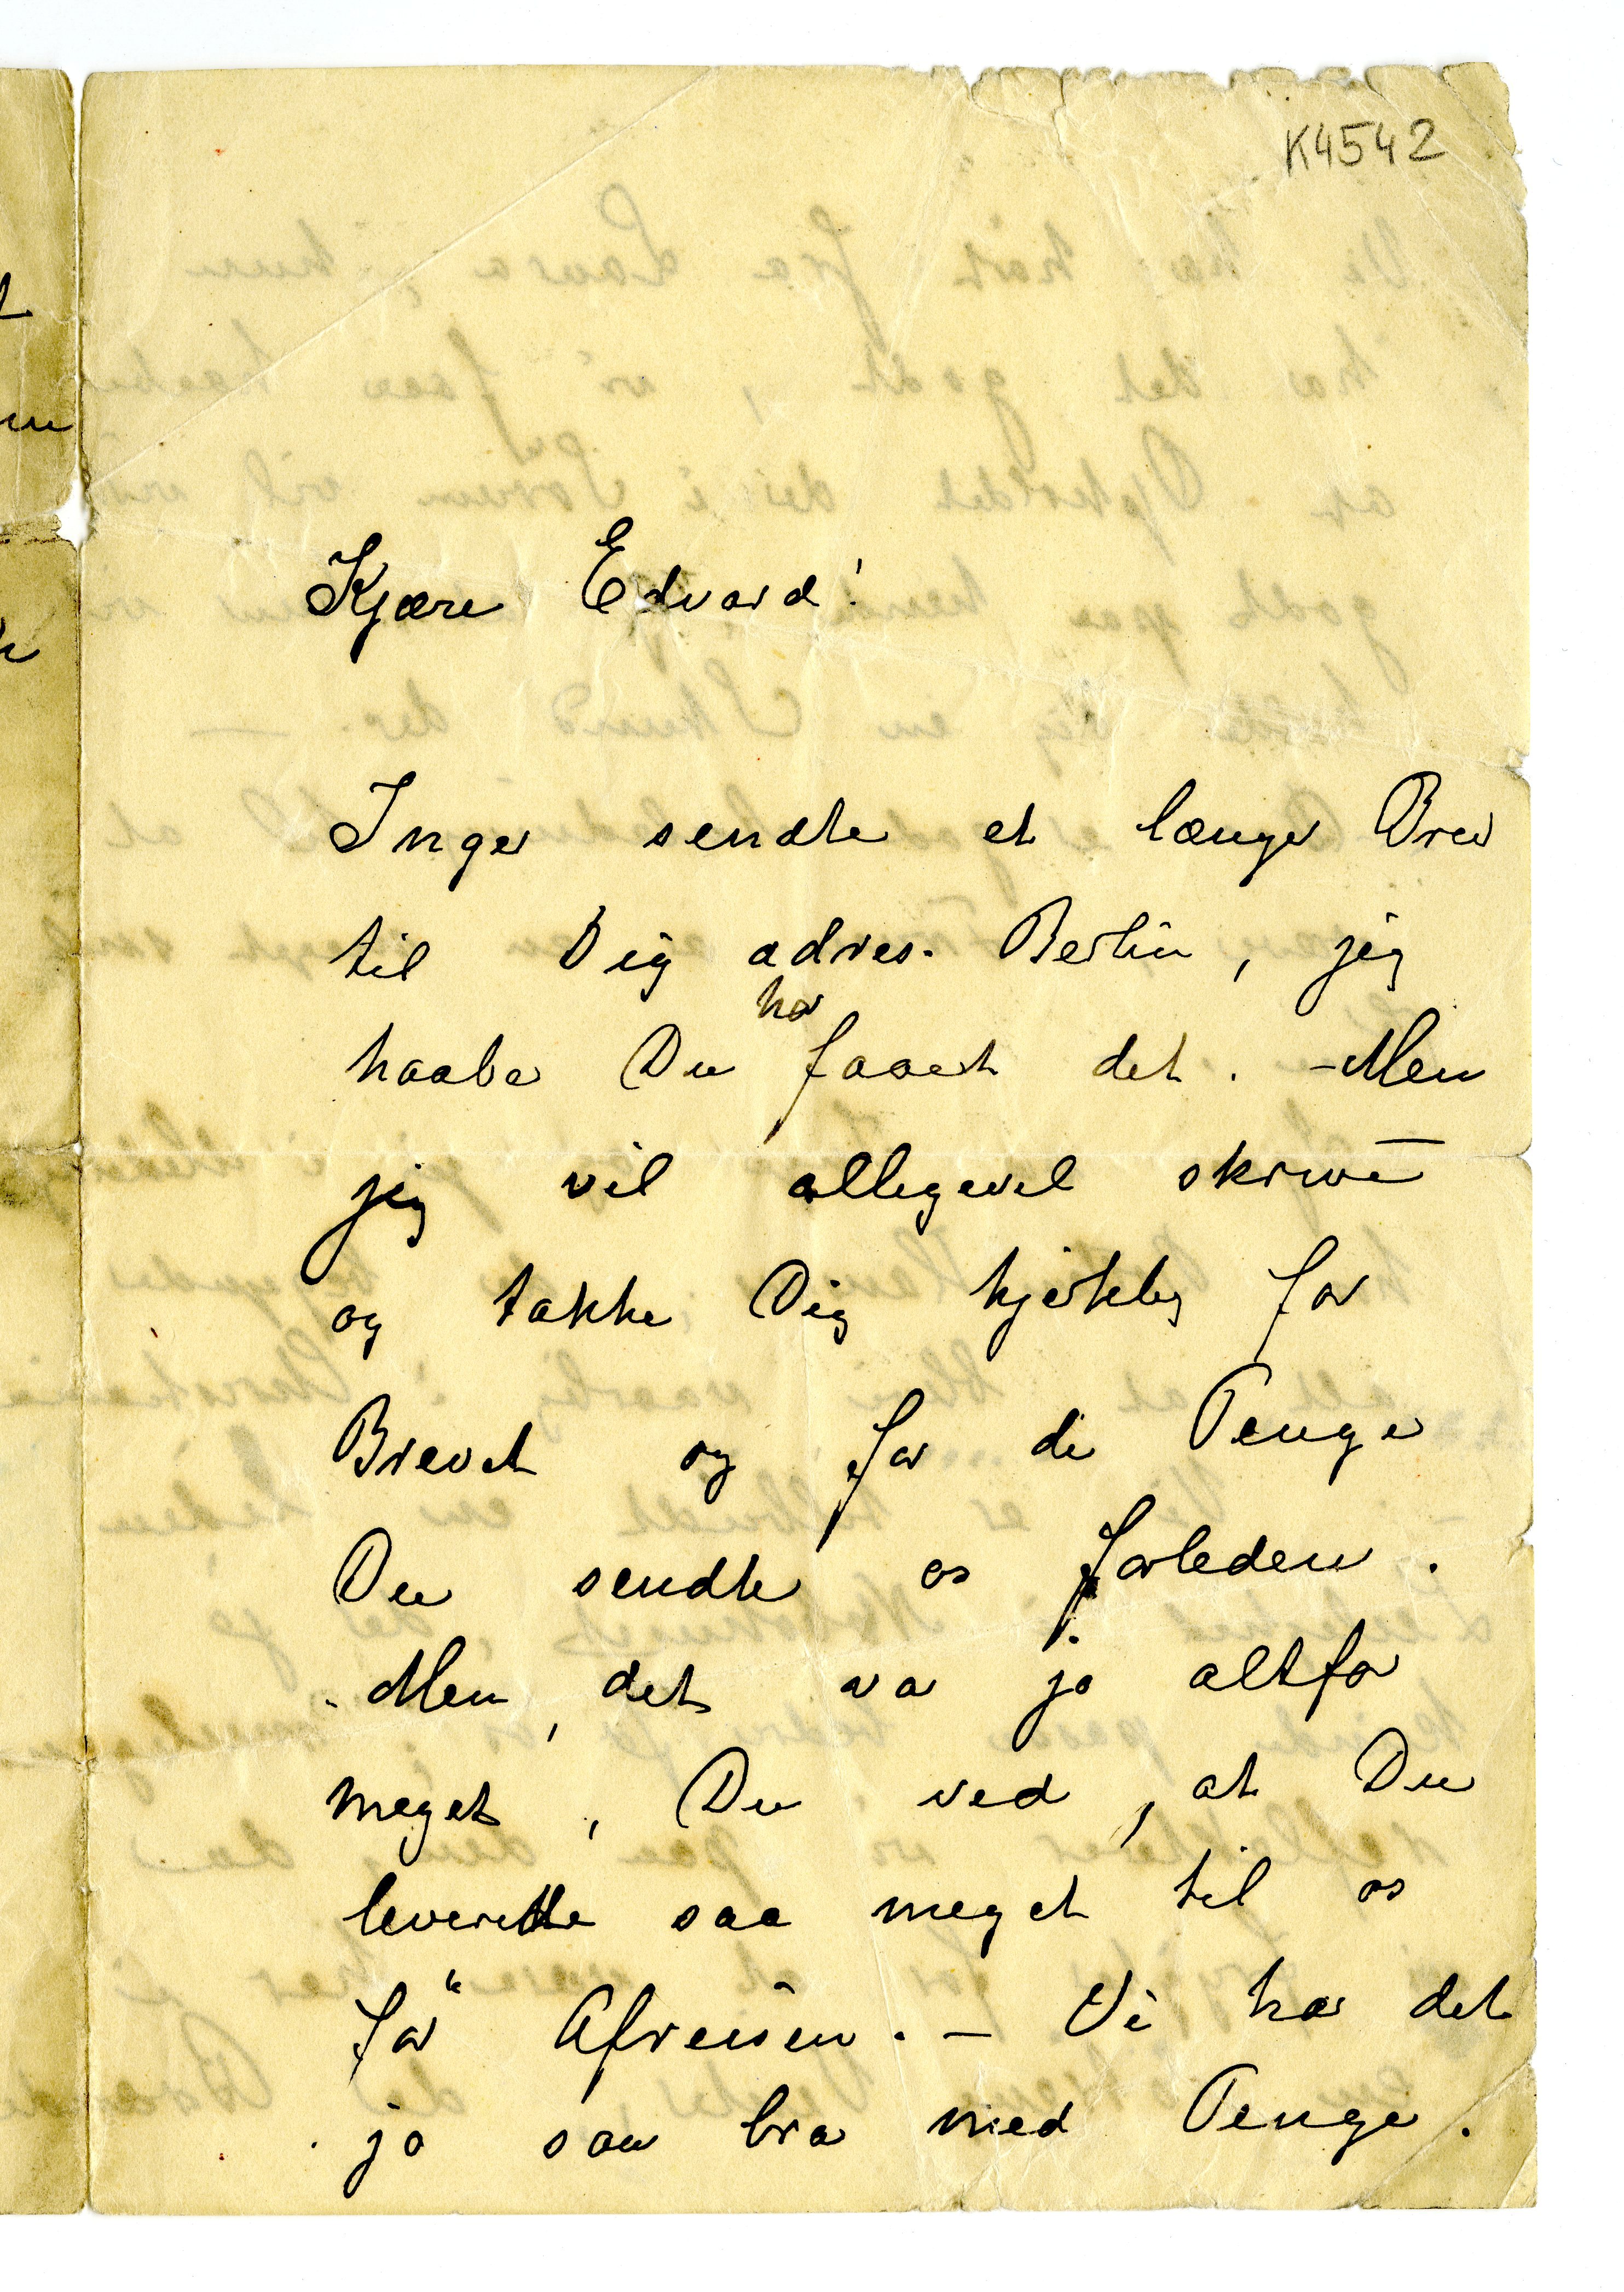 K4542
Kjære Edvard!
Inger sendte et længer Brev
til Dig adres. Berlin, jeg
har
haaber Du faaet det. - Men
jeg vil allegevel skrive
og takke Dig hjertelig for
Brevet og for de Penge
Du sendte os forleden.
- Men, det var jo altfor
meget, Du ved, at Du
leverette saa meget til os
før Afreisen. - Vi har det
jo saa bra med Penge.